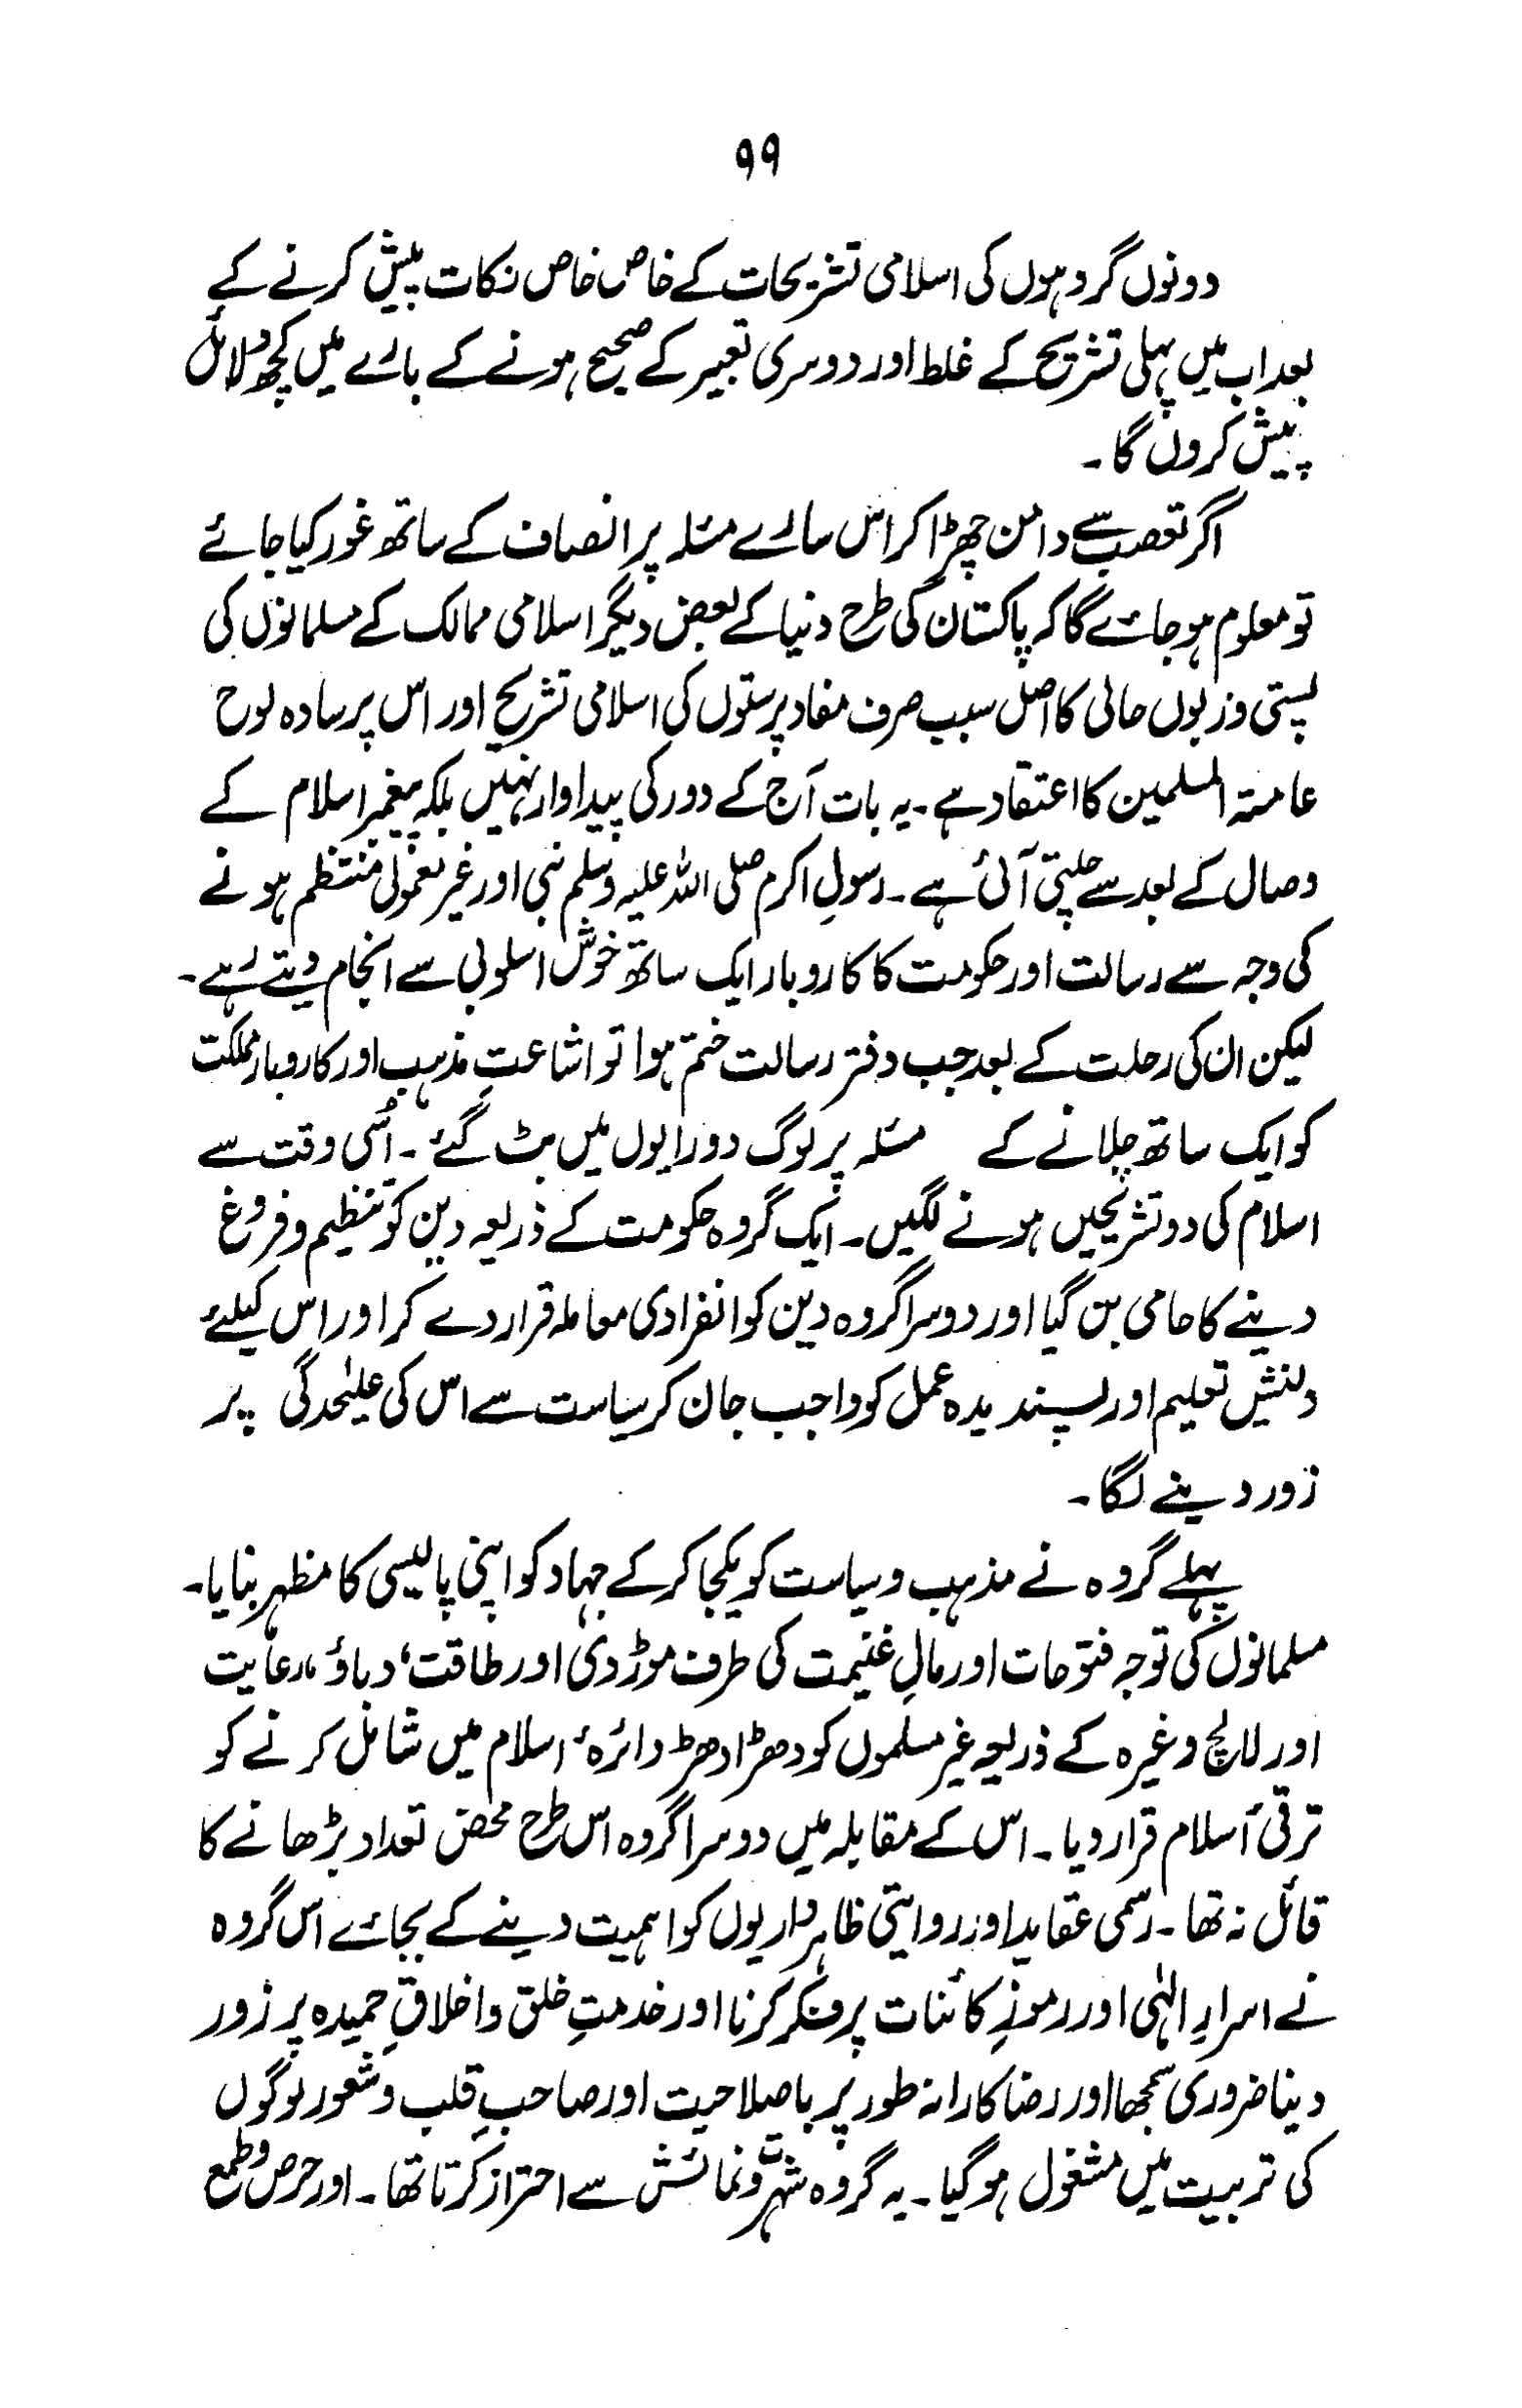 ۹۹
دونوں گروہوں کی اسلامی تشریحات کے خاص خاص نکات پیش کرنے کے
بعد اب میں پہلی تشریح کے غلط اور دوسری تعبیر کے صحیح ہونے کے بارے میں کچھ دلائل
پیش کروں گا۔
اگر تعصب سے دامن چھڑا کر اس سارے مسئلہ پر انصاف کے ساتھ غور کیا جائے
تو معلوم ہو جائے گا کہ پاکستان کی طرح دنیا کے بعض دیگر اسلامی ممالک کے مسلمانوں کی
پستی و زبوں حالی کا اصل سبب صرف مفاد پرستوں کی اسلامی تشریح اور اس پر سادہ لوح
عامۃ المسلمین کا اعتقاد ہے۔ یہ بات آج کے دور کی پیداوار نہیں بلکہ پیغمبر اسلام کے
وصال کے بعد سے چلتی آئی ہے۔ رسولِ اکرم صلی اللہ علیہ وسلم نبی اور غیر معمولی منتظم ہونے
کی وجہ سے رسالت اور حکومت کا کاروبار ایک ساتھ خوش اسلوبی سے انجام دیتے رہے۔
لیکن ان کی رحلت کے بعد جب دفتر رسالت ختم ہوا تو اشاعتِ مذہب اور کاروبار مملکت
کو ایک ساتھ چلانے کے مسئلہ پر لوگ دو رایوں میں بٹ گئے۔ اُسی وقت سے
اسلام کی دو تشریحیں ہونے لگیں۔ ایک گروہ حکومت کے ذریعہ دین کو تنظیم و فروغ
دینے کا حامی بن گیا اور دوسرا گروہ دین کو انفرادی معاملہ قرار دے کر اور اس کیلئے
دلنشیں تعلیم اور پسندیدہ عمل کو واجب جان کر سیاست سے اس کی علیٰحدگی پر
زور دینے لگا۔
پہلے گروہ نے مذہب و سیاست کو یکجا کر کے جہاد کو اپنی پالیسی کا مظہر بنایا۔
مسلمانوں کی توجہ فتوحات اور مالِ غنیمت کی طرف موڑ دی اور طاقت، دباؤ، رعایت
اور لالچ وغیرہ کے ذریعہ غیر مسلموں کو دھڑا دھڑ دائرۂ اسلام میں شامل کرنے کو
ترقئ اسلام قرار دیا۔ اس کے مقابلہ میں دوسرا گروہ اس طرح محض تعداد بڑھانے کا
قائل نہ تھا۔ رسمی عقاید اور روایتی ظاہر داریوں کو اہمیت دینے کے بجائے اس گروہ
نے اسرارِ الہٰی اور رموزِ کائنات پر فکر کرنا اور خدمتِ خلق و اخلاقِ حمیدہ پر زور
دینا ضروری سمجھا اور رضا کارانہ طور پر با صلاحیت اور صاحبِ قلب و شعور لوگوں
کی تربیت میں مشغول ہو گیا۔ یہ گروہ شہرت و نمائش سے احتراز کرتا تھا۔ اور حرص و طمع